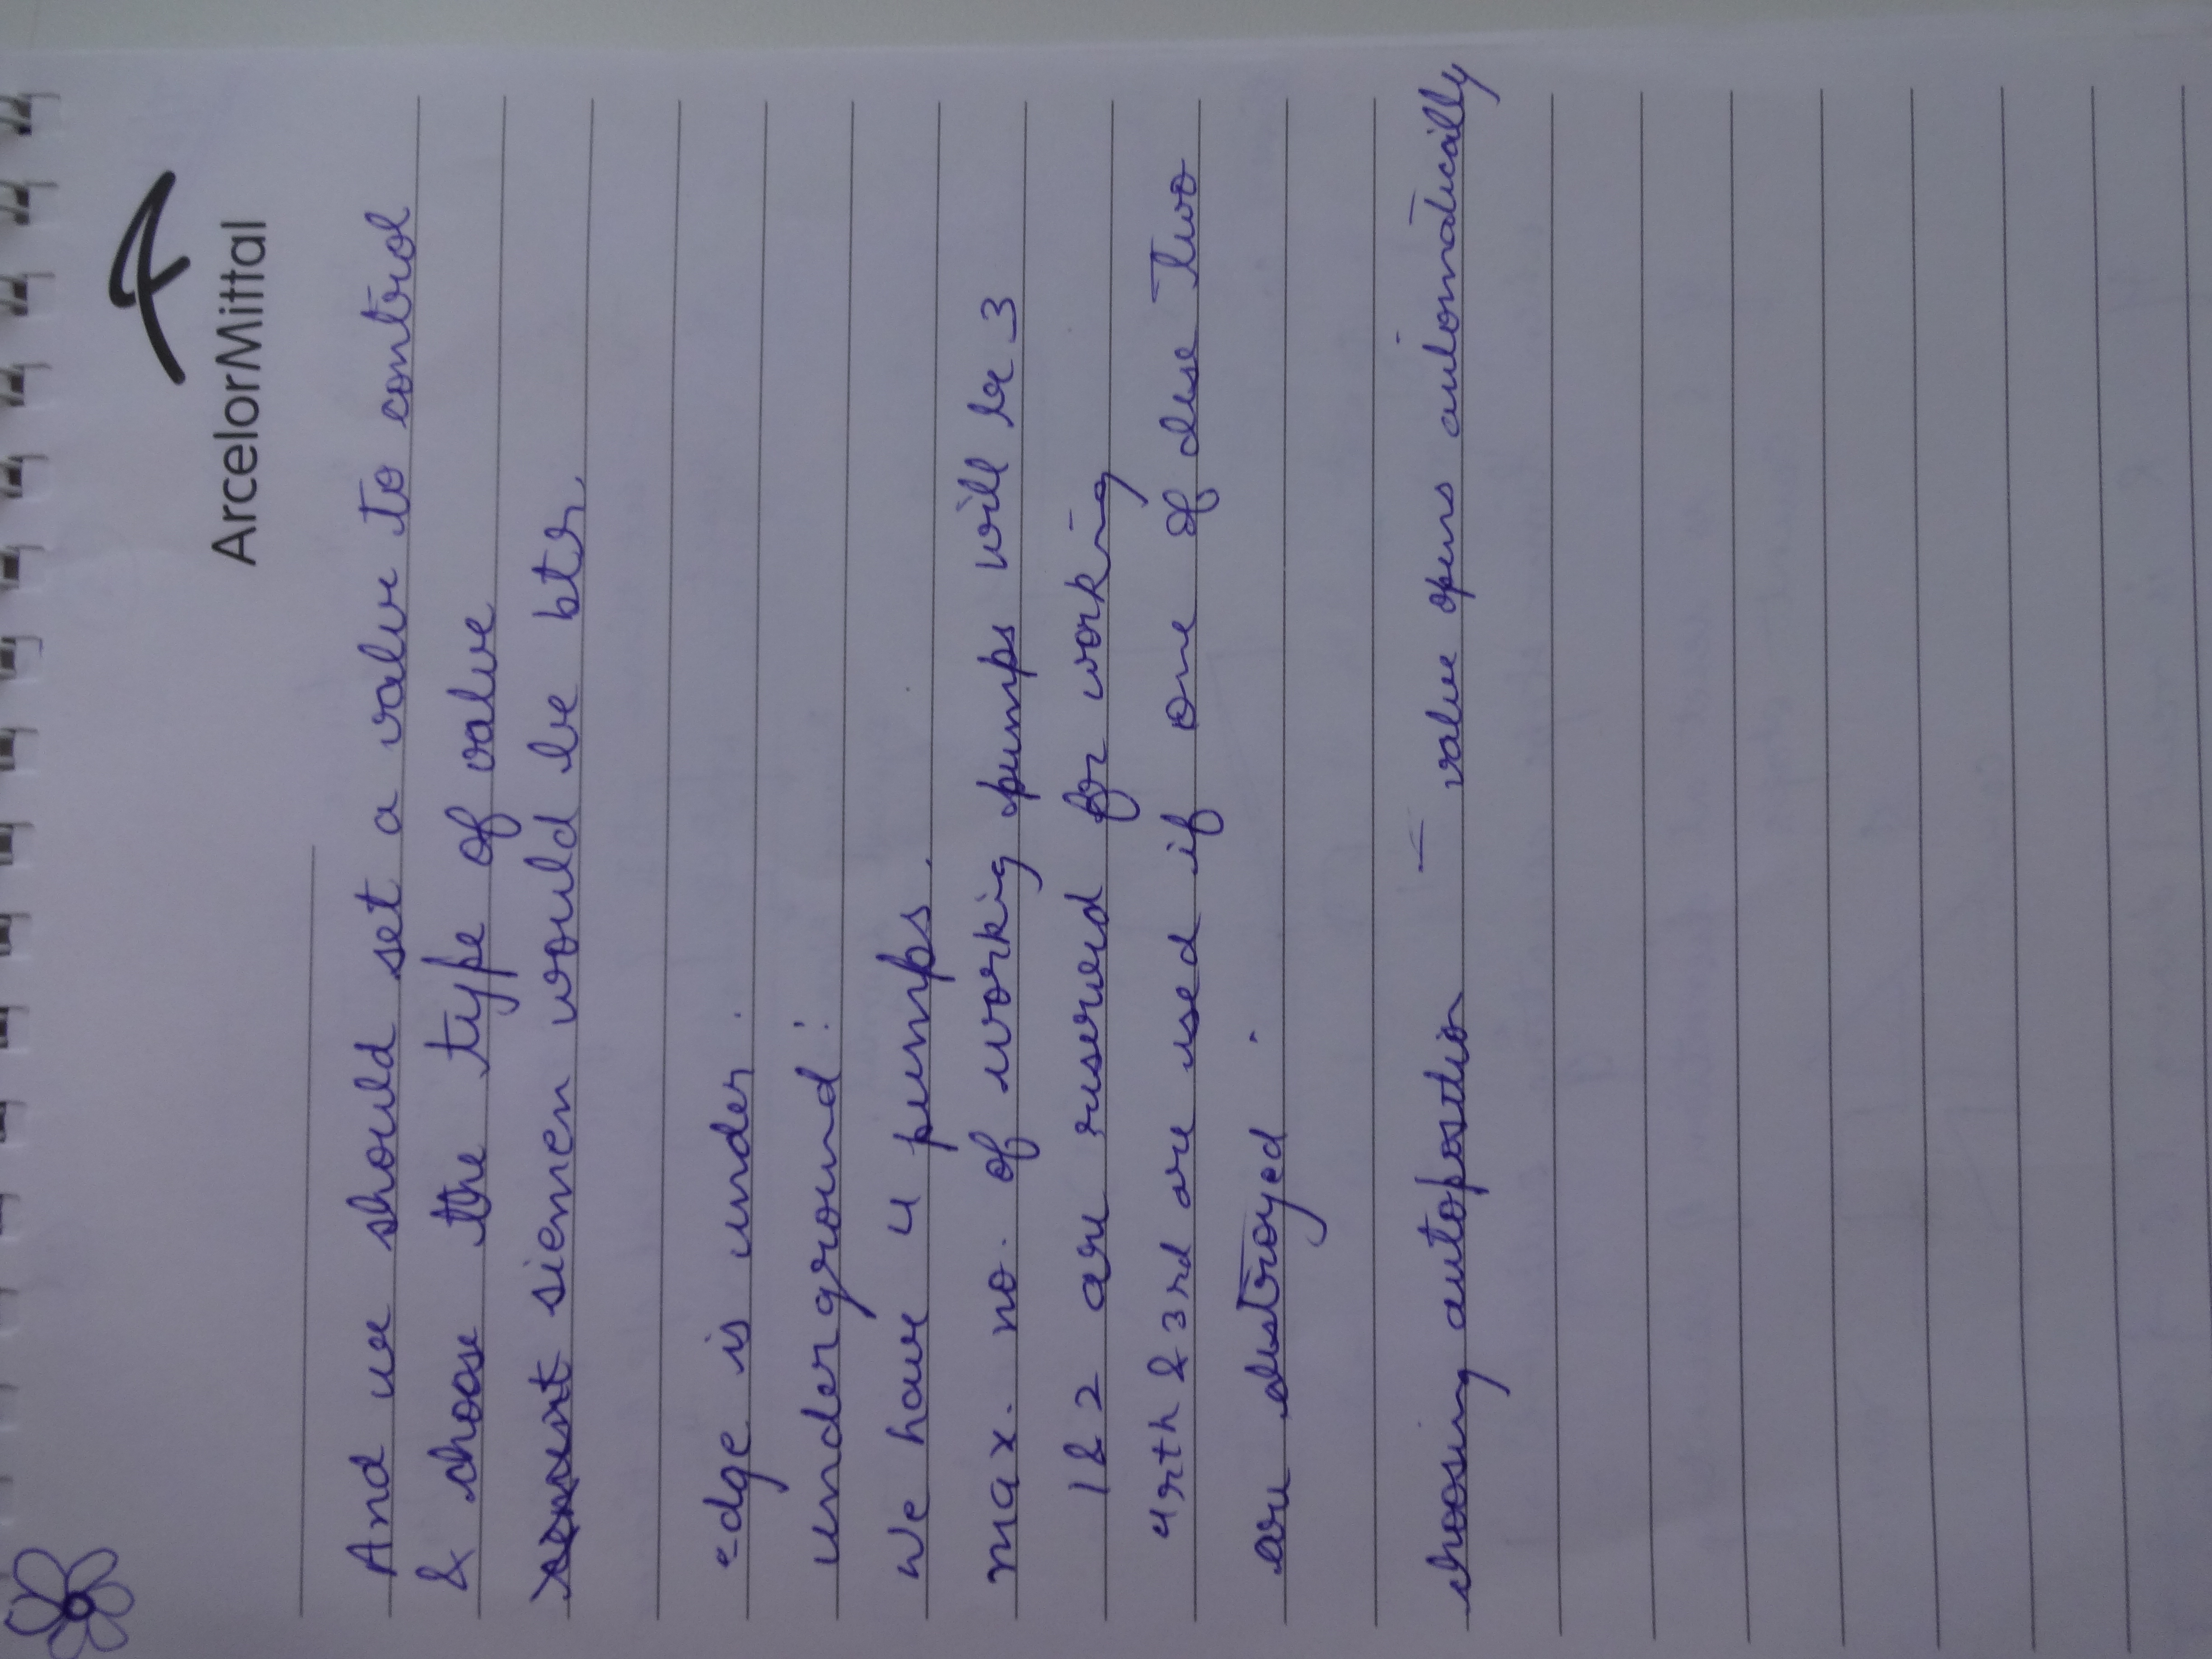 ArcelorMittal
And we should set a value to control
& choose the type of valve
siemen would be btr.
edge is under.
underground:
we have 4 pumps.
max. no. of working pumps will be 3
1 & 2 are reserved for working
4rth & 3rd are used if one of dese two
are destroyed.
choosing autoposition – valve opens automatically